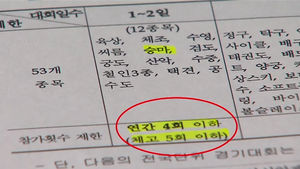 제한 대회일수 1~2일
(12종목)
육상, 체조, 수영, 정구, 탁구,
씨름, 승마, 검도, 사이클, 배
53개 궁도, 산악, 수중, 태권도,
종목 철인3종, 택견, 공
수도
참가횟수 제한 연간 4회 이하
(체고 5회 이하)
- 단, 다음의 전국단위 경기대회는